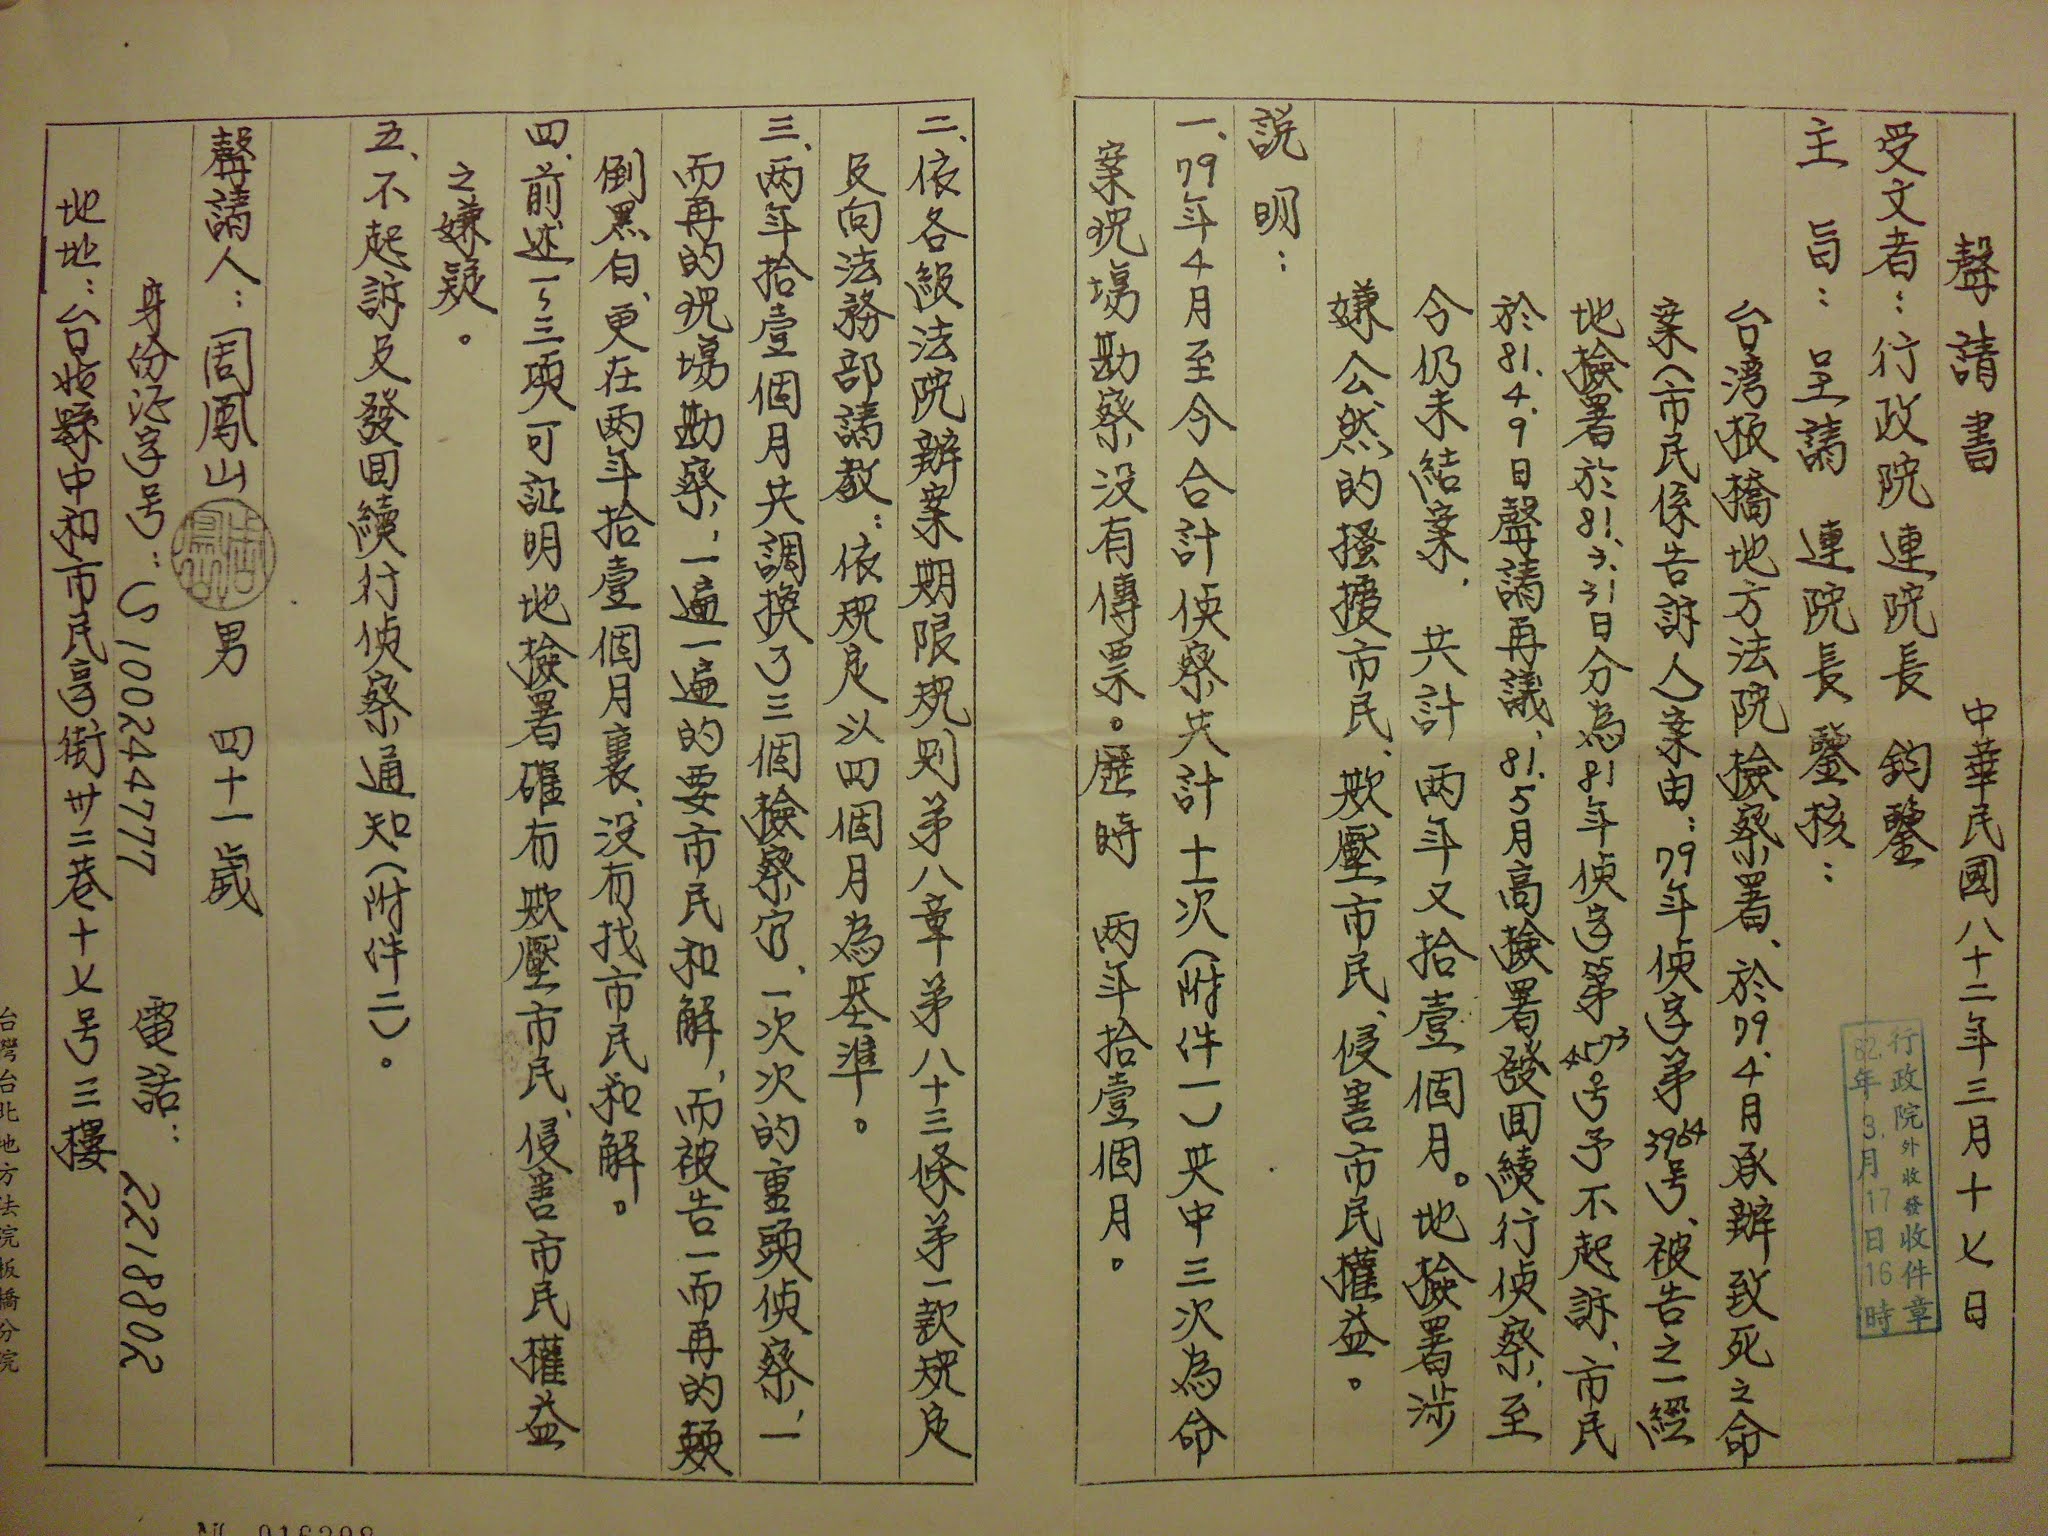 聲請書
中華民國八十二年三月十七日
受文者：行政院連院長 鈞鑒
行政院外收發收件章
82.年3.月17日16時
主 旨：呈請 連院長鑒核：
台湾板橋地方法院檢察署、於79.4月承辦致死之命
案（市民係告訴人）案由：79年偵字第3964号、被告之一經
地檢署於81.3.31日分為81年偵字第4573号予不起訴、市民
於81.4.9日聲請再議、81.5月高檢署發回續行偵察、至
今仍未結案、共計 两年又拾壹個月。地檢署涉
嫌公然的搔擾市民、欺壓市民、侵害市民權益。
説 明：
一、79年4月至今合計偵察共計十一次（附件一）其中三次為命
案現場勘察没有傳票。歷時 两年拾壹個月。
二、依各級法院辦案期限規則第八章第八十三條第一款規定
及向法務部請教：依規定以四個月為基準。
三、两年拾壹個月共調换了三個檢察官、一次次的重頭偵察、一
而再的現場勘察、一遍一遍的要市民和解、而被告一而再的顛
倒黑白、更在两年拾壹個月裏、没有找市民和解。
四、前述一~三項可証明地檢署確有欺壓市民、侵害市民權益
之嫌疑。
五、不起訴及發回續行偵察通知（附件二）。
聲請人：周鳳山 男 四十一歲
身份证字号：S100244777 電話：2218802
地址：台北縣中和市民享街卅二巷十七号三樓
台灣台北地方法院板橋分院